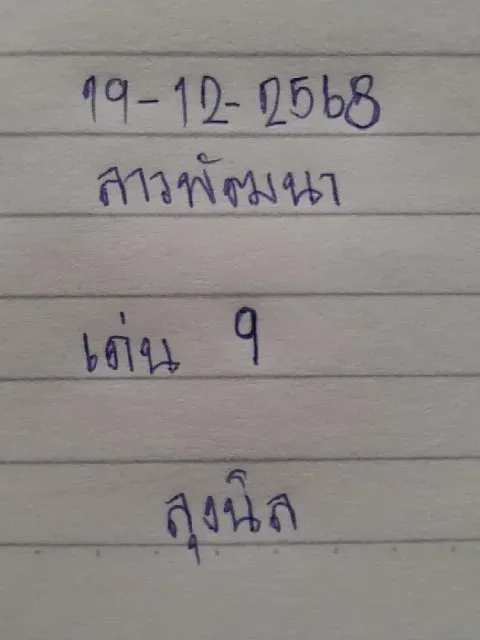 19-12-2568
ลาวพัฒนา
เด่น 9
ลุงนิล